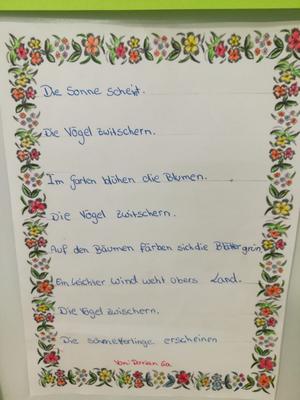 Die Sonne scheint.
Die Vögel zwitschern.
Im Garten blühen die Blumen.
Die Vögel zwitschern.
Auf den Bäumen färben sich die Blätter grün
Ein leichter Wind weht übers Land.
Die Vögel zwischern.
Die schmetterlinge erscheinen
Von: Dorian 6a